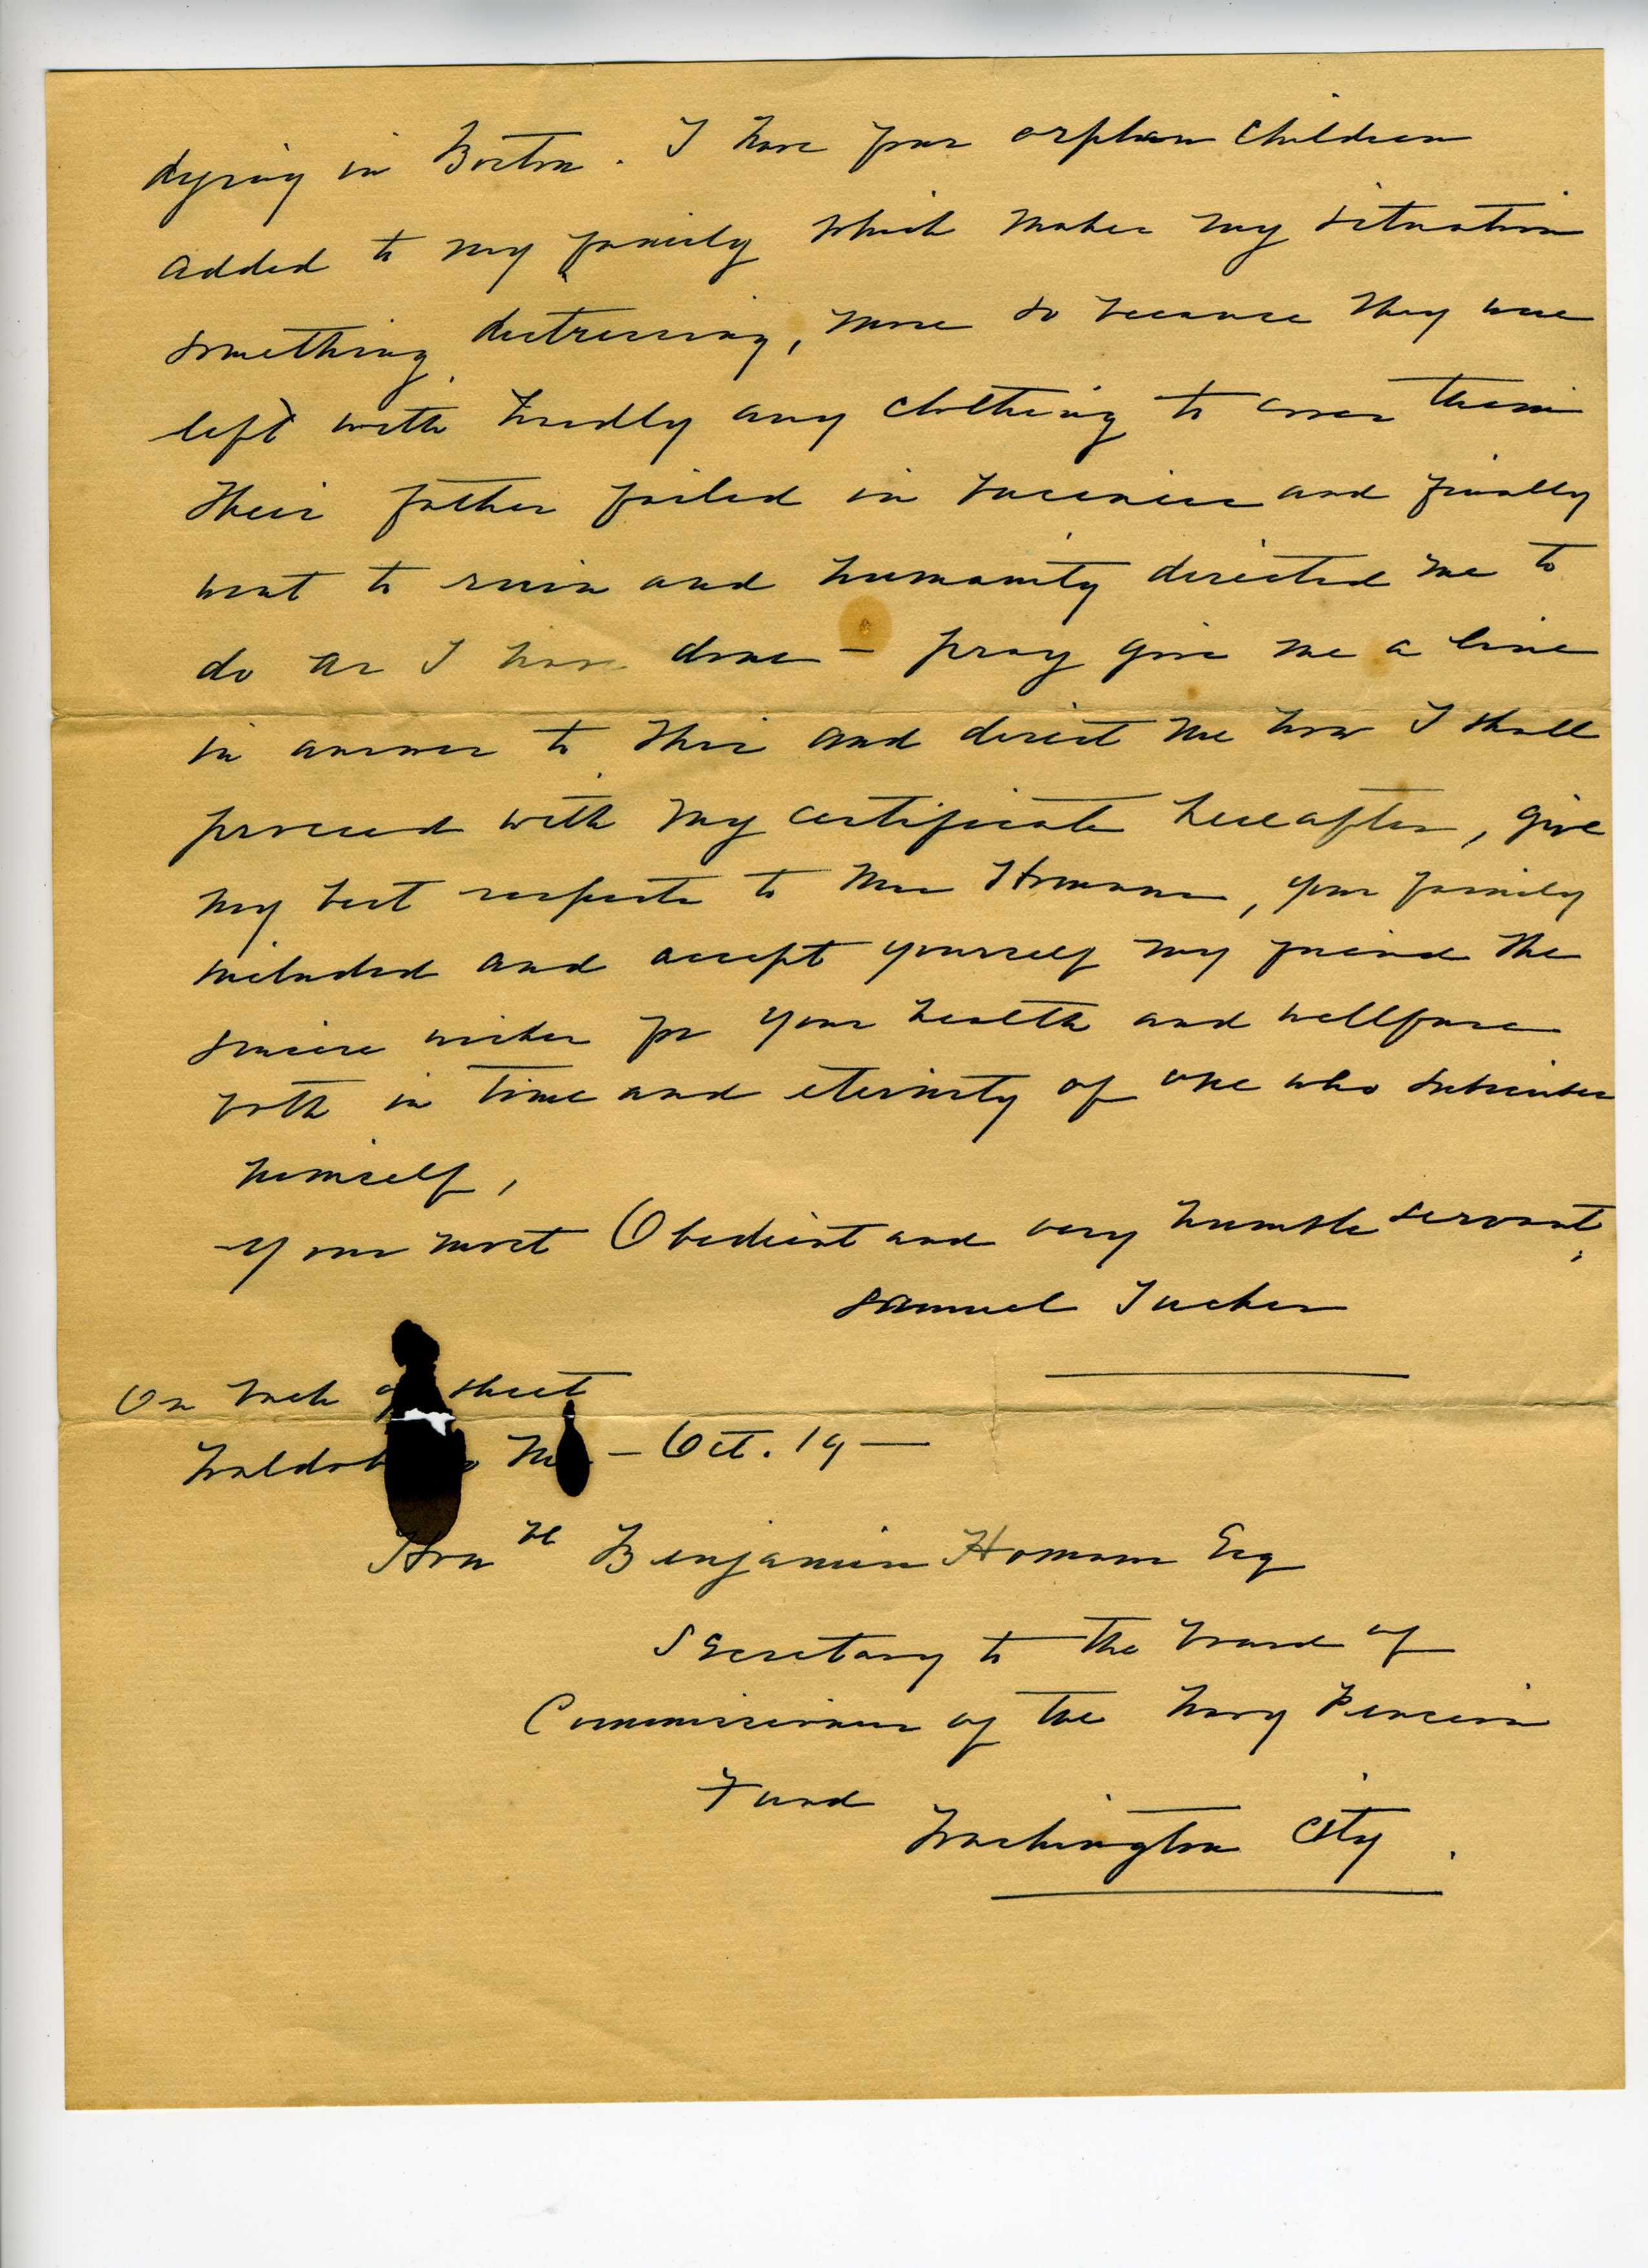 dying in Boston. I have four orphan children
added to my family which makes my situation
something distressing, more so because they were
left with hardly any clothing to cover them
their father failed in business and finally
went to ruin and humanity directed me to
do as I have done — pray give me a line
in answer to this and direct me how I shall
proceed with my certificate hereafter, give
my best respects to Mrs Homans, your family
included and accept yourself my friend the
sincere wishes for your health and wellfare
both in time and eternity of one who subscribes
himself,
Your most Obedient and very humble servant,
Samuel Tucker
On back of sheet
Waldob o M — Oct. 19 —
Hon ble Benjamin Homans Esq
Secretary to the board of
Commissioners of the Navy Pension
Fund
Washington City.